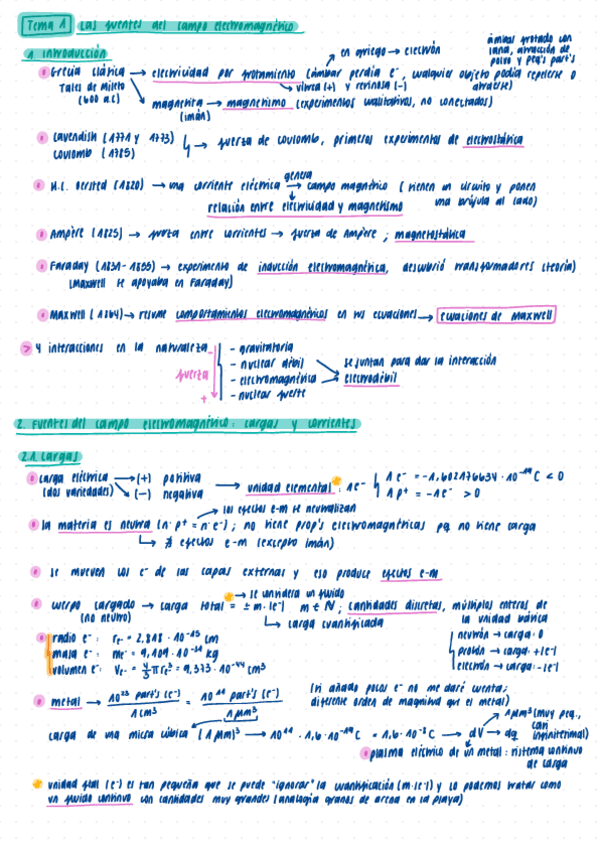 Tema 1 Las fuentes del campo electromagnético
1. Introducción
en griego → electrón
ámbar frotado con lana, atracción de polvo y peq's part's
Grecia clásica → electricidad por frotamiento (ámbar perdía e⁻, cualquier objeto podía repelerse o atraerse)
Tales de Mileto
(600 a.c)
vítrea (+) y resinosa (-)
magnetita → magnetismo (experimentos cualitativos, no conectados)
(imán)
Cavendish (1771 y 1773)
Coulomb (1785)
→ fuerza de Coulomb, primeros experimentos de electrostática
H.C. Oersted (1820) → una corriente eléctrica genera → campo magnético (tienen un circuito y ponen una brújula al lado)
relación entre electricidad y magnetismo
Ampère (1825) → fuerza entre corrientes → fuerza de Ampère ; magnetostática
Faraday (1831-1855) → experimento de inducción electromagnética, descubrió transformadores (teoría)
(Maxwell se apoyaba en Faraday)
Maxwell (1864) → resume comportamientos electromagnéticos en sus ecuaciones → ecuaciones de Maxwell
> 4 interacciones en la naturaleza
- gravitatoria
- nuclear débil
- electromagnética
- nuclear fuerte
fuerza
- +
se juntan para dar la interacción
electrodébil
2. Fuentes del campo electromagnético: cargas y corrientes
2.1. Cargas
carga eléctrica → (+) positiva
(dos variedades) → (-) negativa
→ unidad elemental : 1e⁻
1 e⁻ = -1,602176634 · 10⁻¹⁹ C < 0
1 p⁺ = -1e⁻ > 0
→ los efectos e-m se neutralizan
la materia es neutra (nº p⁺ = nº e⁻) ; no tiene prop's electromagnéticas pq no tiene carga
↳ ∄ efectos e-m (excepto imán)
se mueven los e⁻ de las capas externas y eso produce efectos e-m
→ se considera un fluido
cuerpo cargado → carga total = ± m·|e⁻| m ∈ ℕ ; cantidades discretas, múltiplos enteros de la unidad básica
(no neutro)
↳ carga cuantificada
neutrón → carga 0
protón → carga +|e-|
electrón → carga -|e-|
radio e⁻: re⁻ = 2,818 · 10⁻¹³ cm
masa e⁻: me⁻ = 9,109 · 10⁻³¹ kg
volumen e⁻: Ve⁻ = 4/3 π re³ = 9,373 · 10⁻⁴⁴ cm³
metal → 10²³ part's (e⁻) / 1 cm³ = 10¹¹ part's (e⁻) / 1 μm³
(si añado pocos e⁻ no me daré cuenta; diferente orden de magnitud que el metal)
carga de una micra cúbica (1 μm)³ → 10¹¹ · 1,6 · 10⁻¹⁹ C = 1,6 · 10⁻⁸ C → dV → dq
1 μm³ (muy peq., casi infinitesimal)
plasma eléctrico de un metal: sistema continuo de carga
unidad fdal (e⁻) es tan pequeña que se puede "ignorar" la cuantificación (m·|e-|) y lo podemos tratar como
un fluido continuo con cantidades muy grandes (analogía granos de arena en la playa)